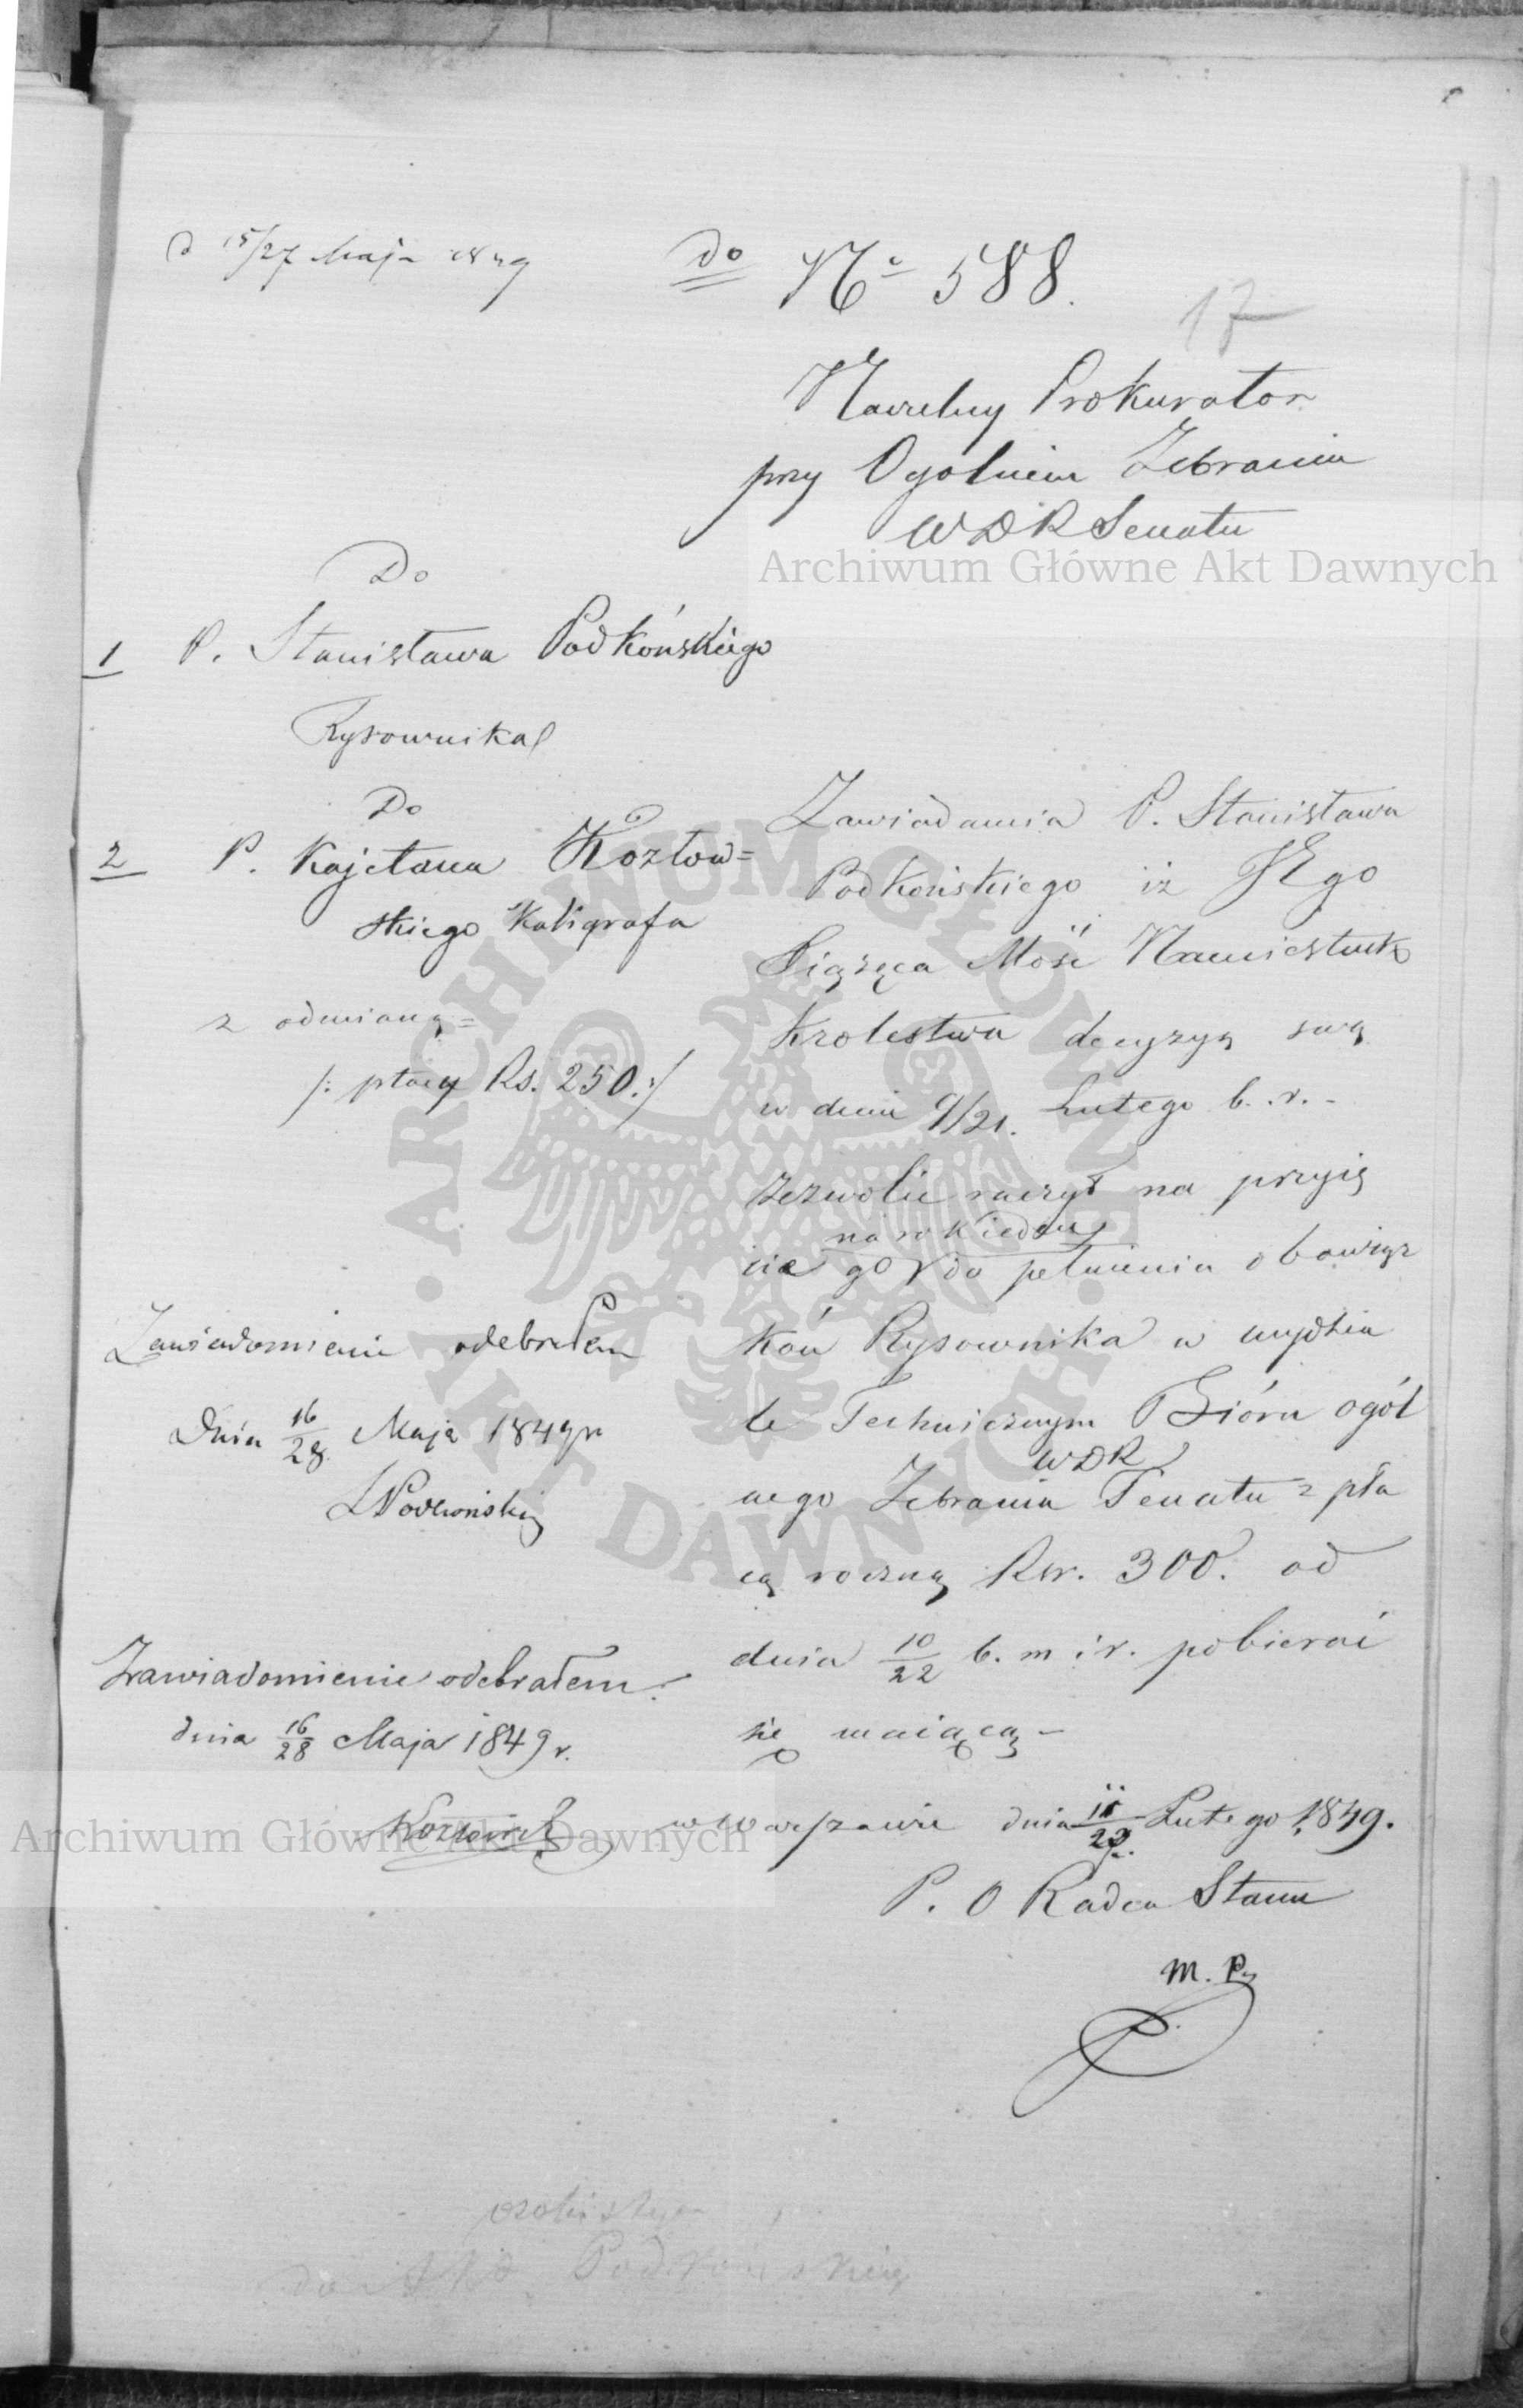 d 15/27 Maja 1849
do No 588.
17
Naczelny Prokurator
przy Ogolnem Zebraniu
WDR Senatu
Archiwum Główne Akt Dawnych
Do
1 P. Stanisława Podkońskiego
Rysownika
Do
2 P. Kajetana Kozłow=
skiego Kaligrafa
z odmianą=
/: płacy Rs. 250. :/
Zawiadamia P. Stanisława
Podkońskiego iż JEgo
Xiążęca Mość Namiestnik
Krolestwa decyzyą swą
w dniu 9/21. Lutego b. r. -
zezwolić raczył na przyię
na rok ieden
cie go do pełnienia obowiąz
ków Rysownika w wydzia
le Technicznym Bióra ogól
WDR
nego Zebrania Senatu z pła
cą roczną Rsr. 300. od
dnia 10/22 b. m i r. pobierać
się maiącą -
w Warszawie dnia 11/23 Lutego 1849.
P. O Radca Stanu
M. P.
Zawiadomienie odebrałem
Dnia 16/28 Maja 1849 r
SPodkoński
Zawiadomienie odebrałem.
dnia 16/28 Maja 1849 r.
Kozłowski
Archiwum Główne Akt Dawnych
ARCHIWUM GŁÓWNE · AKT DAWNYCH ·
osobistych
do Akt Podkońskiego